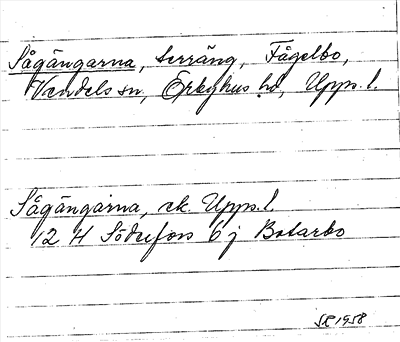 Sågängarna, terräng, Fågelbo,
Vendels sn, Örbyhus hd, Upps. l.
Sågängarna, ek. Upps. l.
12 H Söderfors 6 j Botarbo
SR 1958